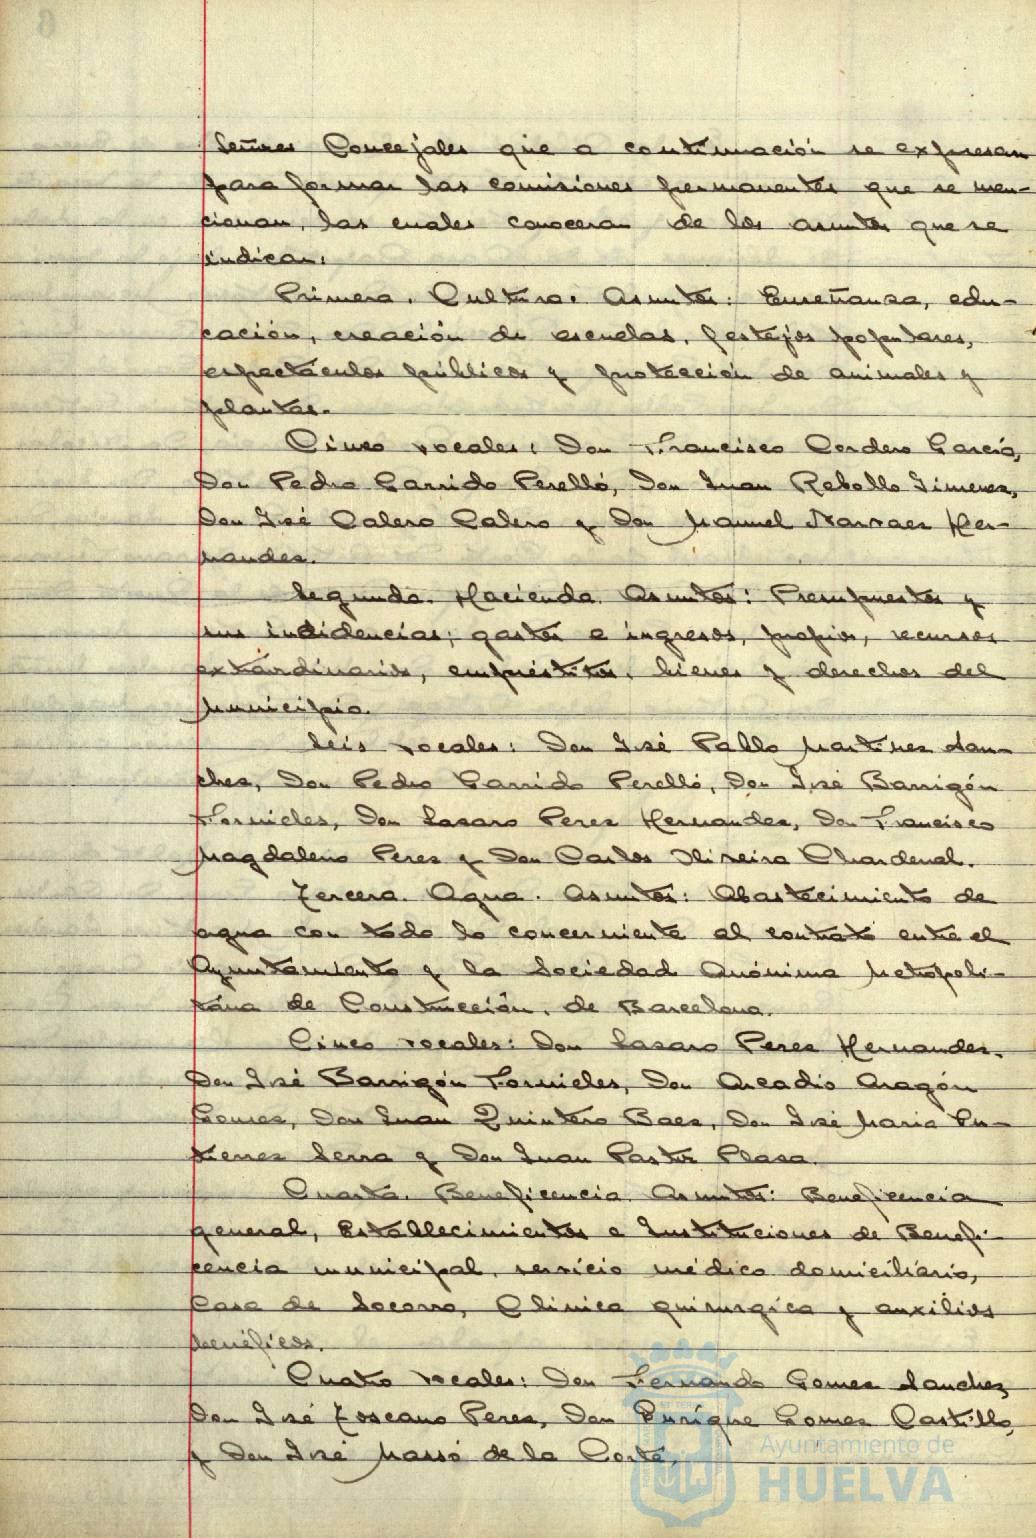 Señores Concejales que a continuación se expresan
para formar las comisiones permanentes que se men-
cionan, las cuales conoceran de los asuntos que se
indican:
Primera. Cultura. Asuntos: Enseñanza, edu-
cación, creación de escuelas, festejos populares,
espectáculos públicos y protección de animales y
plantas.
Cinco vocales: Don Francisco Cordero García,
Don Pedro Garrido Perelló, Don Juan Rebollo Jimenez,
Don José Calero Calero y Don Manuel Narvaez Her-
nandez.
Segunda. Hacienda. Asuntos: Presupuestos y
sus indidencias; gastos e ingresos, propios, recursos
extardinarios, empréstitos, bienes y derechos del
Municipio.
Seis vocales: Don José Pablo Martinez San-
chez, Don Pedro Garrido Perelló, Don José Barrigón
Fornieles, Don Lazaro Perez Hernandez, Don Francisco
Magdaleno Perez y Don Carlos Oliveira Chardenal.
Tercera. Agua. Asuntos: Abastecimiento de
agua con todo lo concerniente al contrato entre el
Ayuntamiento y la Sociedad Anónima Metropoli-
tana de Construcción, de Barcelona.
Cinco vocales: Don Lazaro Perez Hernandez,
Don José Barrigón Fornieles, Don Arcadio Aragón
Gomez, Don Juan Quintero Baez, Don José Maria Gu-
tierrez Serra y Don Juan Pastor Plaza.
Cuarta. Beneficencia. Asuntos: Beneficencia
general, Establecimientos e Instituciones de Benefi-
cencia municipal, servicio médico domiciliario,
Casa de Socorro, Clinica quirurgica y auxilios
benéficos.
Cuatro vocales: Don Fernando Gomez Sanchez,
Don José Toscano Perez, Don Enrique Gomez Castillo,
y Don José Massó de la Corte,
Ayuntamiento de
HUELVA